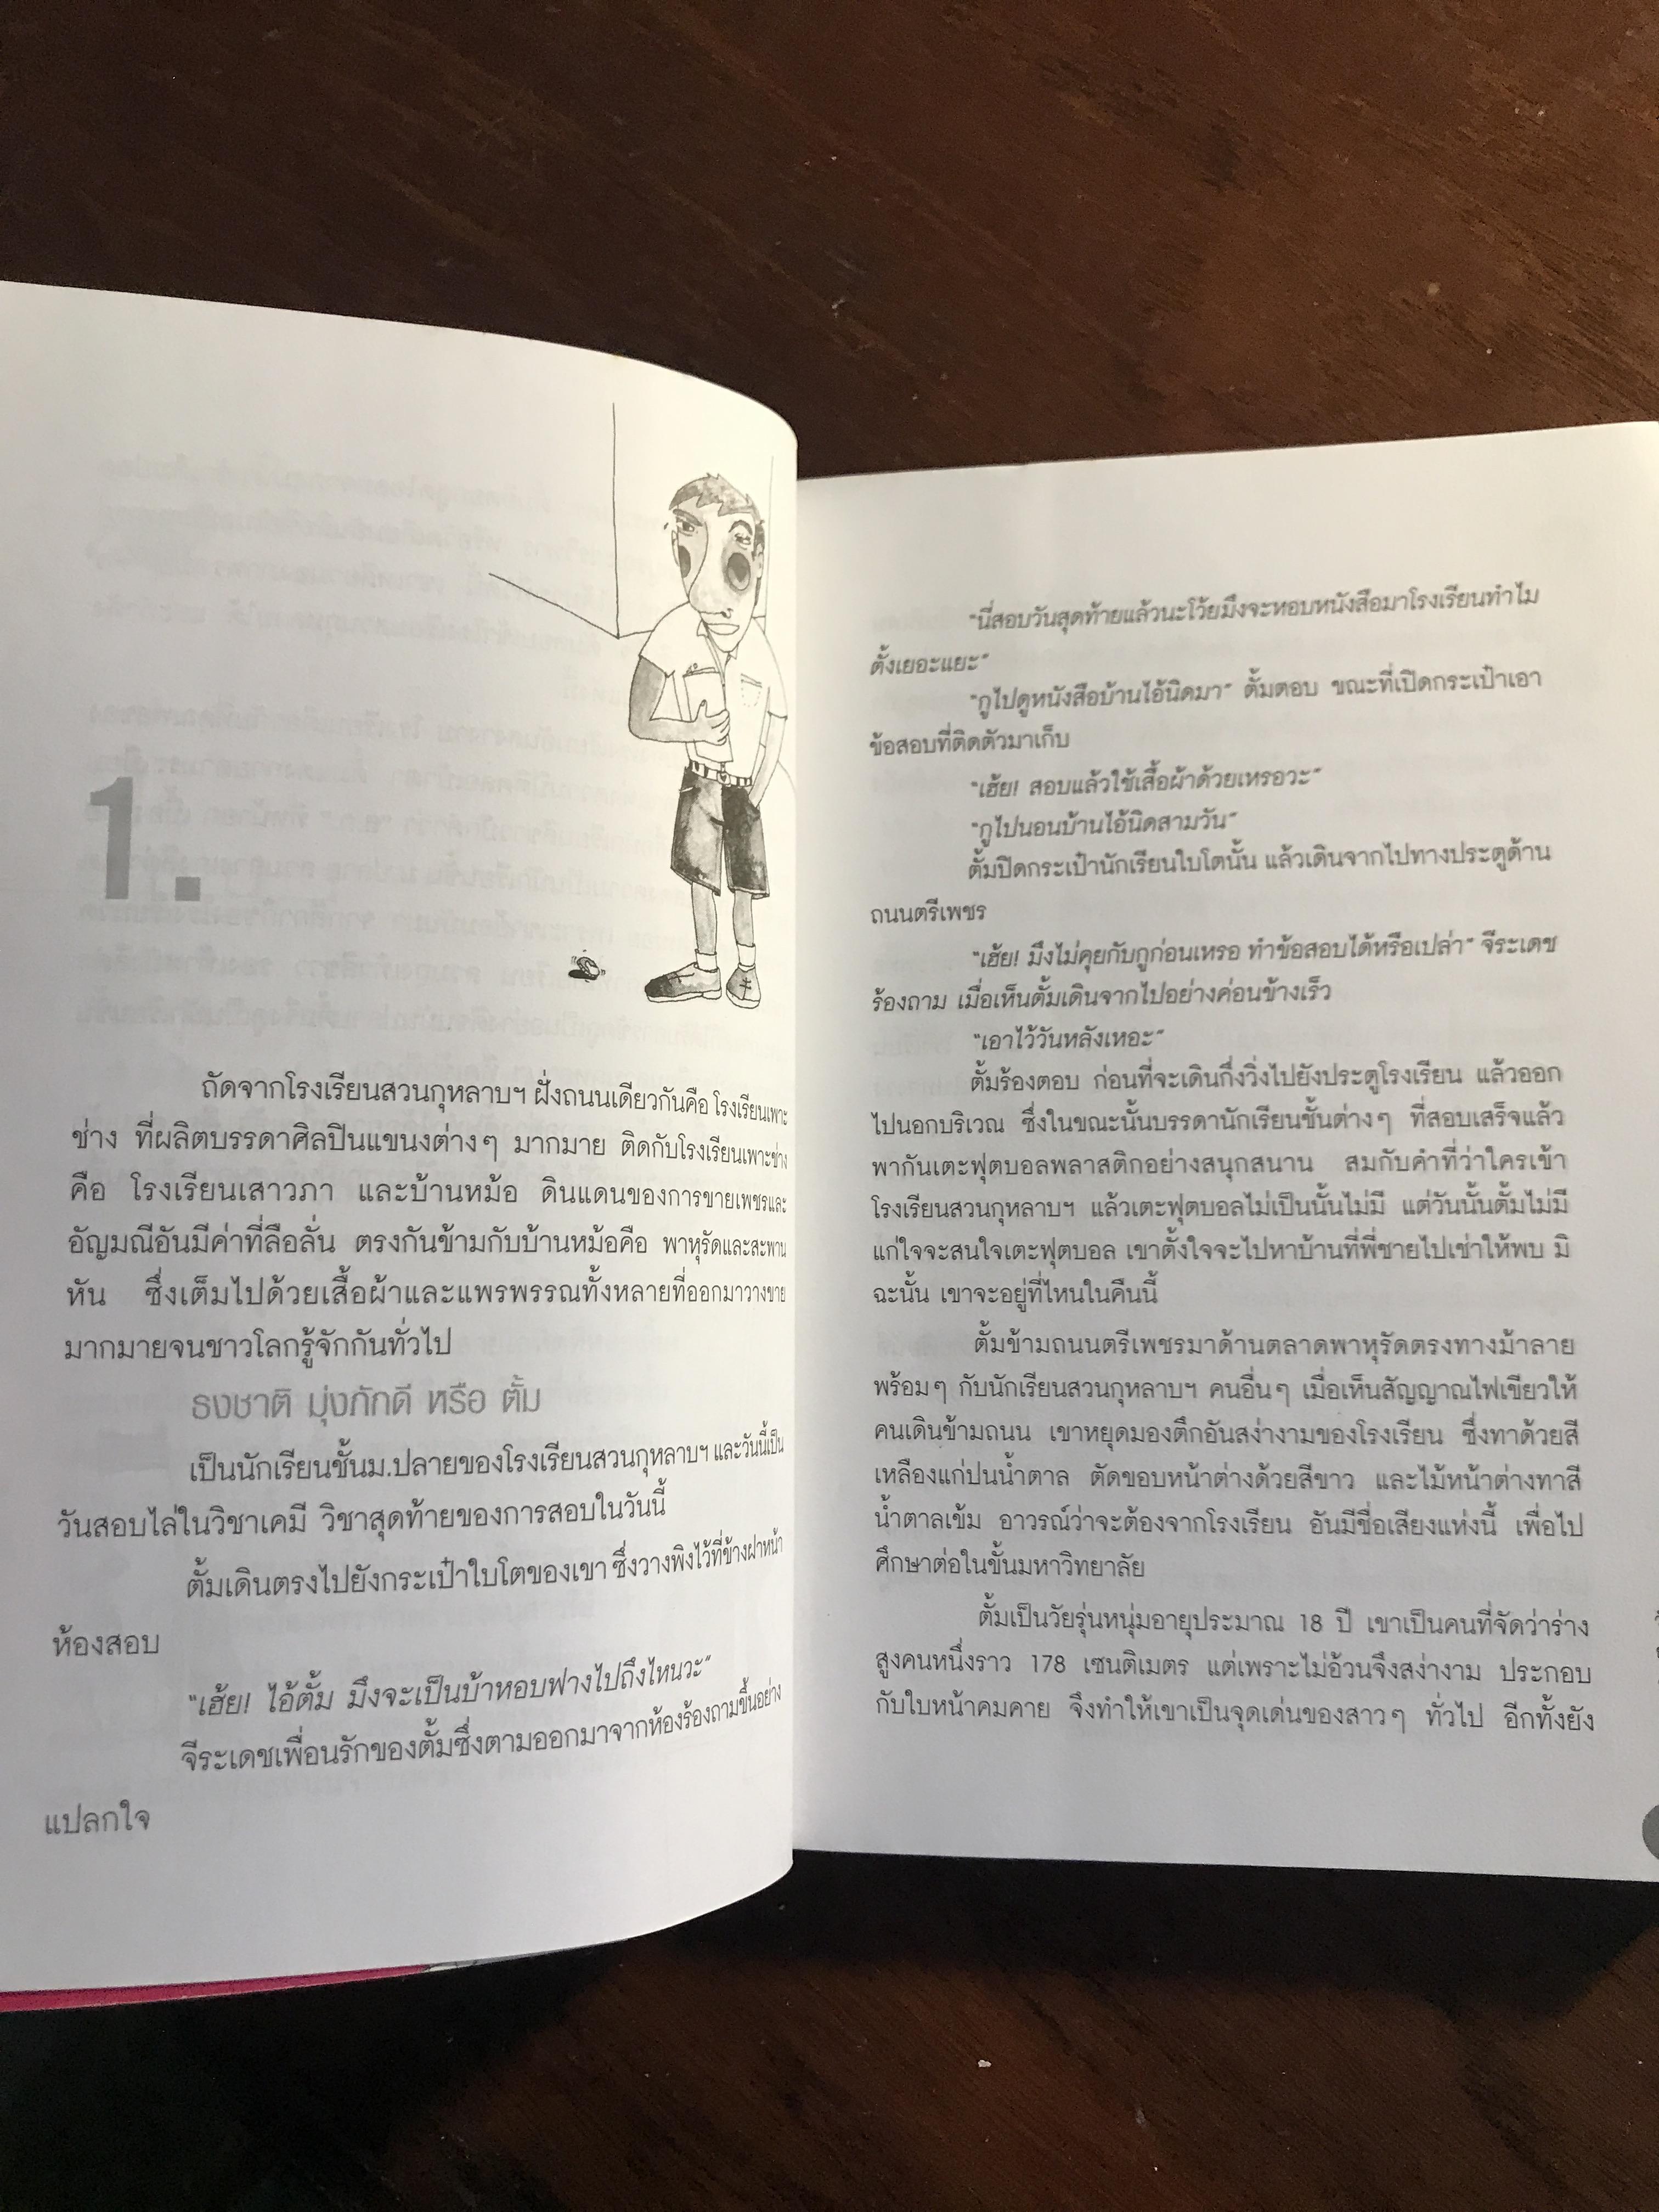 1.
ถัดจากโรงเรียนสวนกุหลาบฯ ฝั่งถนนเดียวกันคือ โรงเรียนเพาะ
ช่าง ที่ผลิตบรรดาศิลปินแขนงต่างๆ มากมาย ติดกับโรงเรียนเพาะช่าง
คือ โรงเรียนเสาวภา และบ้านหม้อ ดินแดนของการขายเพชรและ
อัญมณีอันมีค่าที่ลือลั่น ตรงกันข้ามกับบ้านหม้อคือ พาหุรัดและสะพาน
หัน ซึ่งเต็มไปด้วยเสื้อผ้าและแพรพรรณทั้งหลายที่ออกมาวางขาย
มากมายจนชาวโลกรู้จักกันทั่วไป
ธงชาติ มุ่งภักดี หรือ ตั้ม
เป็นนักเรียนชั้นม.ปลายของโรงเรียนสวนกุหลาบฯ และวันนี้เป็น
วันสอบไล่ในวิชาเคมี วิชาสุดท้ายของการสอบในวันนี้
ตั้มเดินตรงไปยังกระเป๋าใบโตของเขา ซึ่งวางพิงไว้ที่ข้างฝาหน้า
ห้องสอบ
"เฮ้ย! ไอ้ตั้ม มึงจะเป็นบ้าหอบฟางไปถึงไหนวะ"
จีระเดชเพื่อนรักของตั้มซึ่งตามออกมาจากห้องร้องถามขึ้นอย่าง
แปลกใจ
"นี่สอบวันสุดท้ายแล้วนะโว้ยมึงจะหอบหนังสือมาโรงเรียนทำไม
ตั้งเยอะแยะ"
"กูไปดูหนังสือบ้านไอ้นิดมา" ตั้มตอบ ขณะที่เปิดกระเป๋าเอา
ข้อสอบที่ติดตัวมาเก็บ
"เฮ้ย! สอบแล้วใช้เสื้อผ้าด้วยเหรอวะ"
"กูไปนอนบ้านไอ้นิดสามวัน"
ตั้มปิดกระเป๋านักเรียนใบโตนั้น แล้วเดินจากไปทางประตูด้าน
ถนนตรีเพชร
"เฮ้ย! มึงไม่คุยกับกูก่อนเหรอ ทำข้อสอบได้หรือเปล่า" จีระเดช
ร้องถาม เมื่อเห็นตั้มเดินจากไปอย่างค่อนข้างเร็ว
"เอาไว้วันหลังเหอะ"
ตั้มร้องตอบ ก่อนที่จะเดินกึ่งวิ่งไปยังประตูโรงเรียน แล้วออก
ไปนอกบริเวณ ซึ่งในขณะนั้นบรรดานักเรียนชั้นต่างๆ ที่สอบเสร็จแล้ว
พากันเตะฟุตบอลพลาสติกอย่างสนุกสนาน สมกับคำที่ว่าใครเข้า
โรงเรียนสวนกุหลาบฯ แล้วเตะฟุตบอลไม่เป็นนั้นไม่มี แต่วันนั้นตั้มไม่มี
แก่ใจจะสนใจเตะฟุตบอล เขาตั้งใจจะไปหาบ้านที่พี่ชายไปเช่าให้พบ มิ
ฉะนั้น เขาจะอยู่ที่ไหนในคืนนี้
ตั้มข้ามถนนตรีเพชรมาด้านตลาดพาหุรัดตรงทางม้าลาย
พร้อมๆ กับนักเรียนสวนกุหลาบฯ คนอื่นๆ เมื่อเห็นสัญญาณไฟเขียวให้
คนเดินข้ามถนน เขาหยุดมองตึกอันสง่างามของโรงเรียน ซึ่งทาด้วยสี
เหลืองแก่ปนน้ำตาล ตัดขอบหน้าต่างด้วยสีขาว และไม้หน้าต่างทาสี
น้ำตาลเข้ม อาวรณ์ว่าจะต้องจากโรงเรียน อันมีชื่อเสียงแห่งนี้ เพื่อไป
ศึกษาต่อในขั้นมหาวิทยาลัย
ตั้มเป็นวัยรุ่นหนุ่มอายุประมาณ 18 ปี เขาเป็นคนที่จัดว่าร่าง
สูงคนหนึ่งราว 178 เซนติเมตร แต่เพราะไม่อ้วนจึงสง่างาม ประกอบ
กับใบหน้าคมคาย จึงทำให้เขาเป็นจุดเด่นของสาวๆ ทั่วไป อีกทั้งยัง